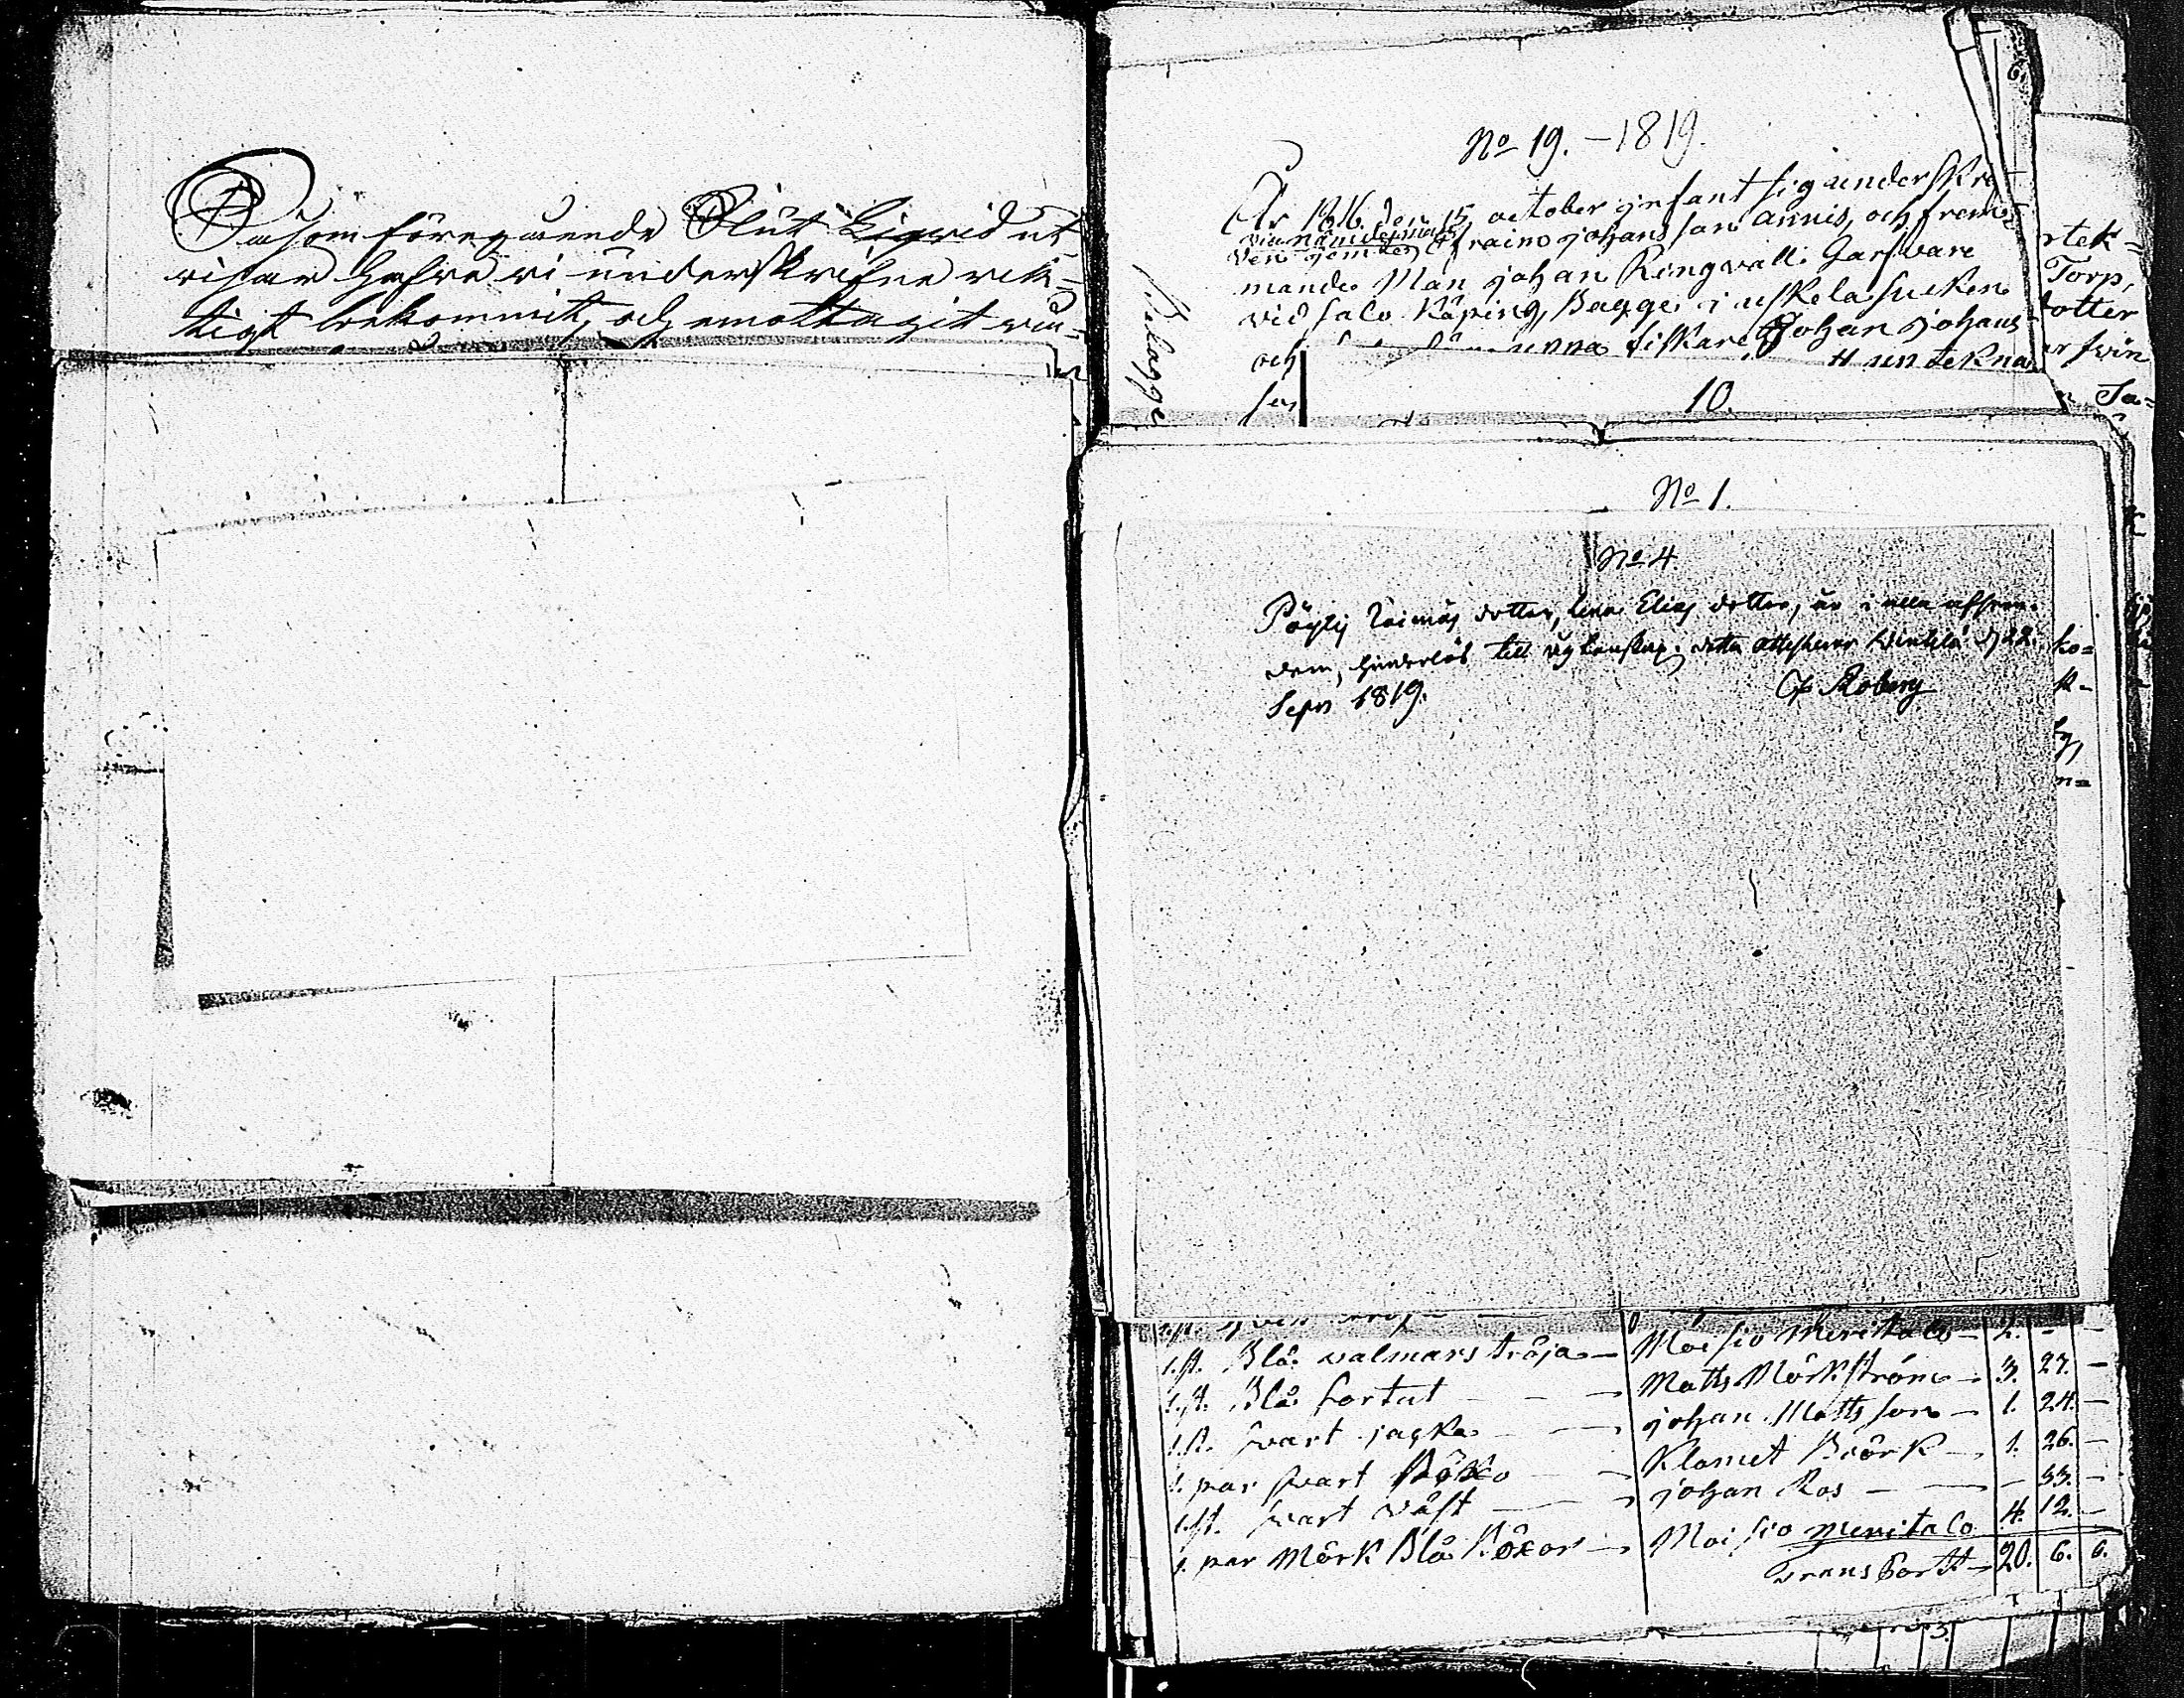 Såsom föregående Slut Liqvid ut
visar hafva vi underskrifne rik-
tigt bekommit, och emottagit
No 19. - 1819.
År 1816 den 15 october jnfant sig underskref
ven jemten Efraim johans son annis, och freme
mande Man johan Ringvall Garfvare
vid salo Köping, Bagge i uskela sucken
och unna fiskare Johan johans
sen untekna
10.
Bilagge
rtek-
Torp,
dotter
er svin
Sa-
No 1.
No 4.
Pöyly Raimos dotter, Lena Elias dotter, är i alla afseen-
den, hinderlös till ägtenskap. detta attesterar d 22.
Sepr 1819. Roberg
ko-
k-
n-
1. st. Blå valmars tröja - Moisio Meritalo - 2. - -
1. st. Blå Sortut - - Matts Mörkström - 3. 27. -
1. st. svart jacka - - johan Matts son - 1. 24. -
1. par svart - Klamet Björk - 1. 26. -
1. st. svart väst - johan Ros - - 33. -
1. par Mörk Blå Böxor - Moisio Meritalo 4. 12. -
Transportt - 20. 6. 6.